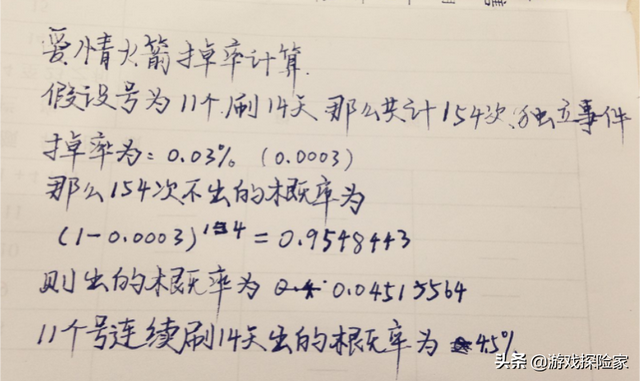 爱情火箭掉率计算.
假设号为11个.刷14天 那么共计154次.独立事件
掉率为:0.03% (0.0003)
那么154次不出的概率为
(1-0.0003)154=0.9548443
则出的概率为 0.04515564
11个号连续刷14天出的概率为 4.5%
头条 @游戏探险家